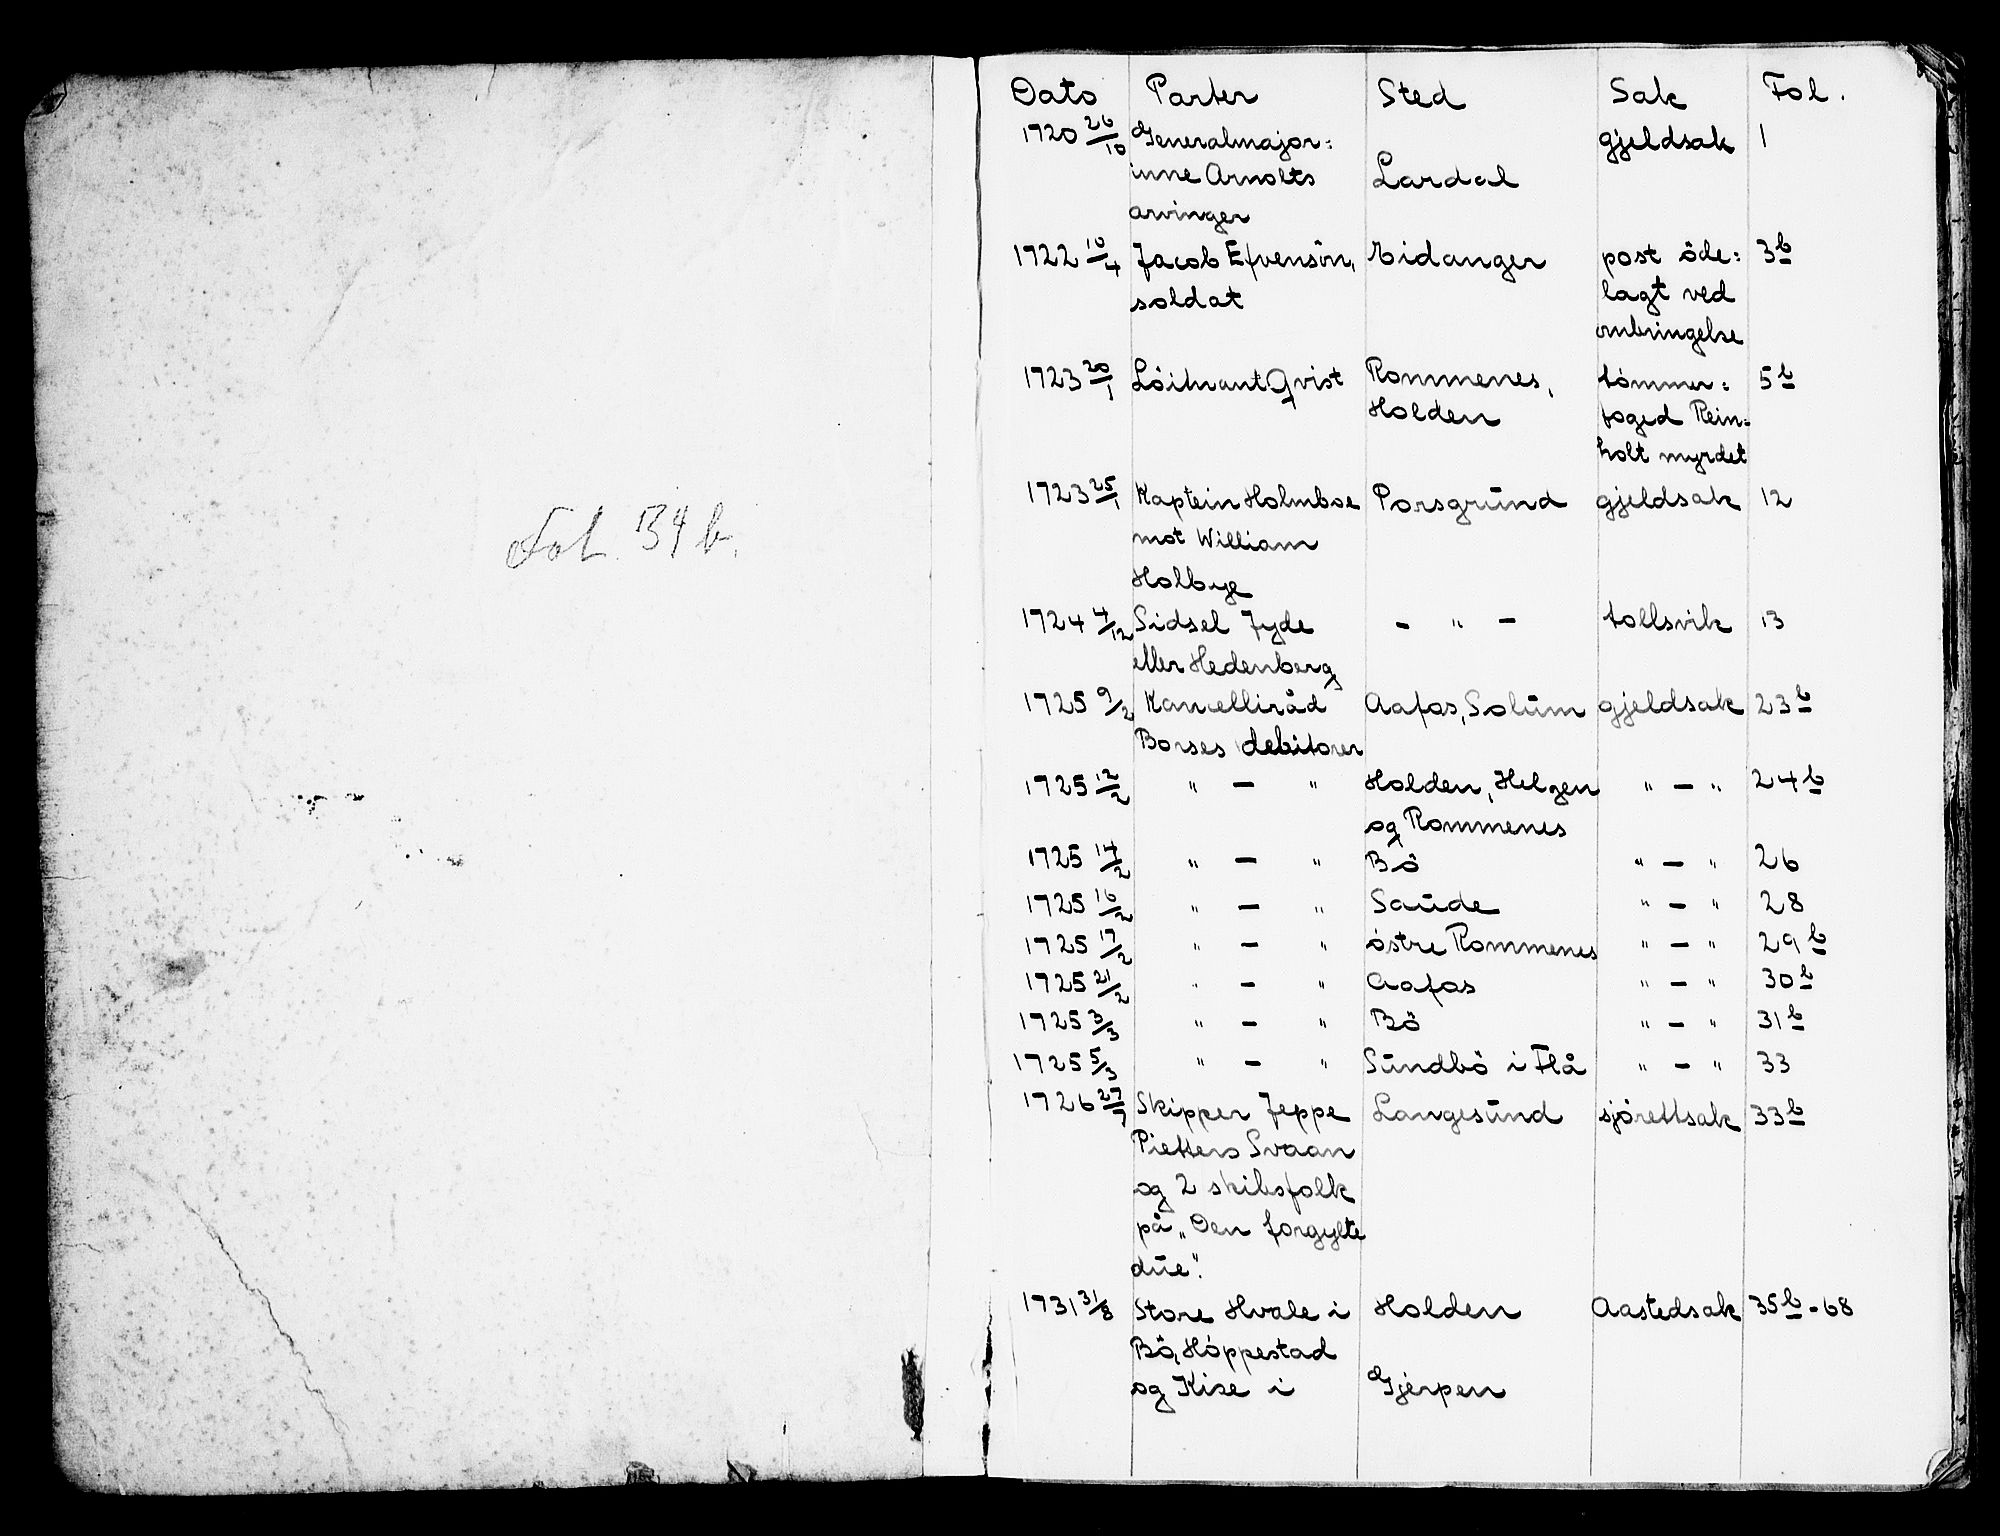 Fol. 134 b.
Dato Parter Sted Sak Fol.
1720 26/10 Generalmajor: gjeldsak 1
inne Arnolts Lardal
arvinger
1722 10/4 Jacob Efvensön, Eidanger post öde: 3b
soldat lagt ved
ombringelse
1723 20/1 Löitnant Qvist Rommenes, tömmer: 5b
Holden foged Rein:
holt myrdet
1723 25/1 Kaptein Holmboe Porsgrund gjeldsak 12
mot William
Holbye
1724 4/12 Sidsel Jyde - " - tollsvik 13
eller Hedenberg
1725 9/2 Kancelliråd Aafos, Solum gjeldsak 23b
Borses debitorer
1725 12/2 " - " Holden, Helgen " - " 24b
og Rommenes
1725 14/2 " - " Bö " - " 26
1725 16/2 " - " Saude " - " 28
1725 17/2 " - " östre Rommenes " - " 29b
1725 21/2 " - " Aafos " - " 30b
1725 3/3 " - " Bö " - " 31b
1725 5/3 " - " Sundbö i Flå " - " 33
1726 27/7 Skipper Jeppe Langesund sjörettsak 33b
Pietters Svaan
og 2 skibsfolk
på „Den forgylte
due".
1731 31/8 Store Hvale i Holden Aastedsak 35b - 68
Bö, Höppestad
og Kise i Gjerpen